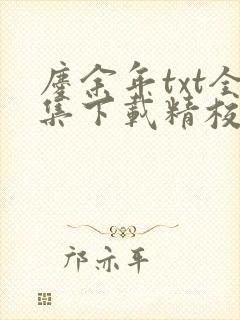 余年txt全
集下載精
邝亦平